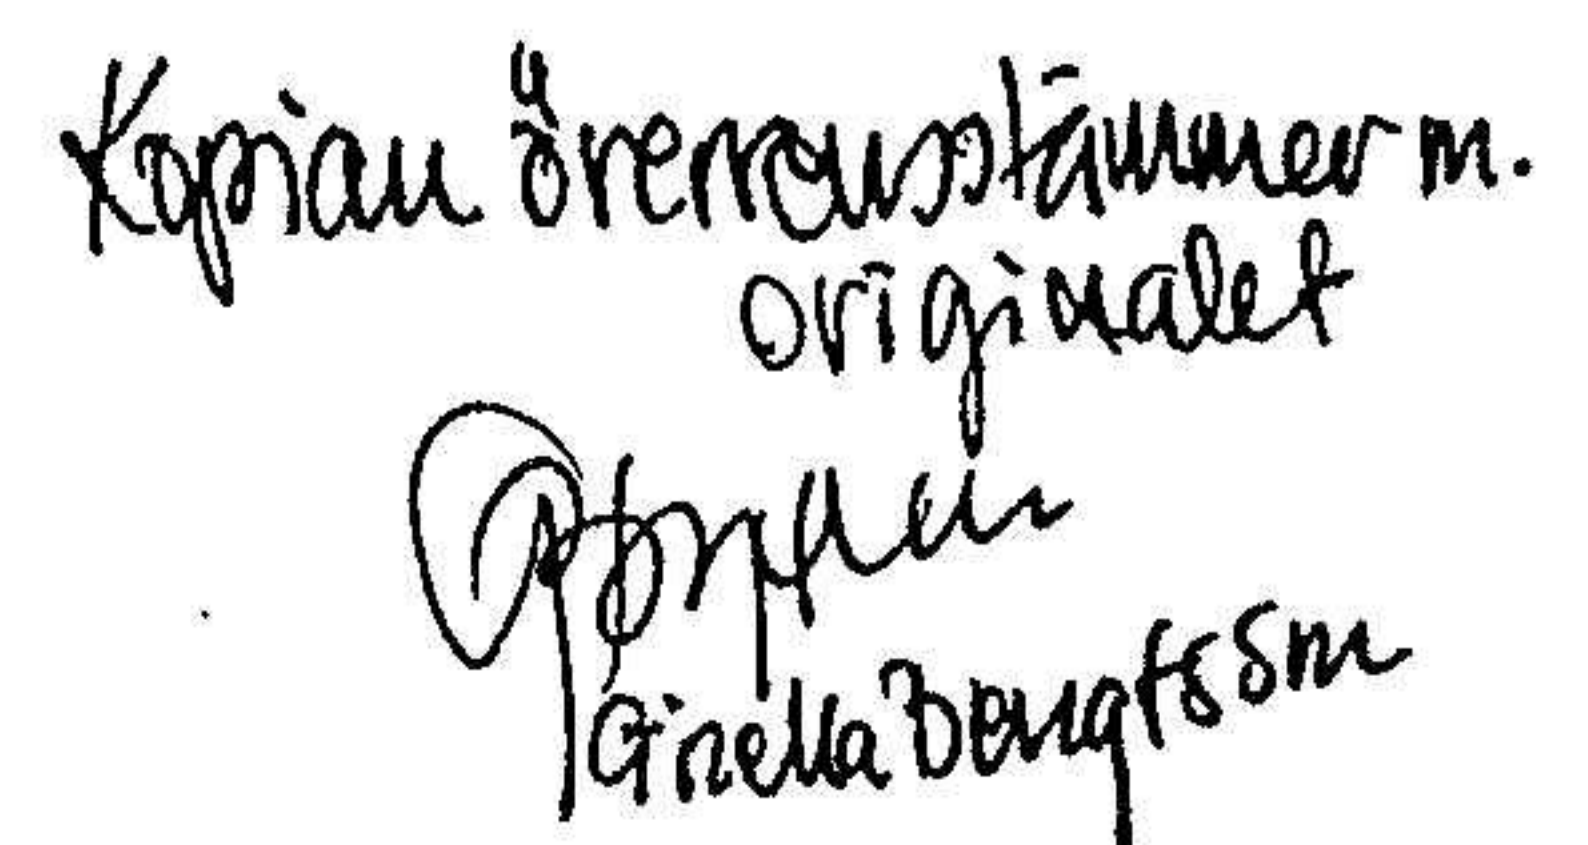 Kopian överensstämmer m.
originalet
Ginella Bengtsson